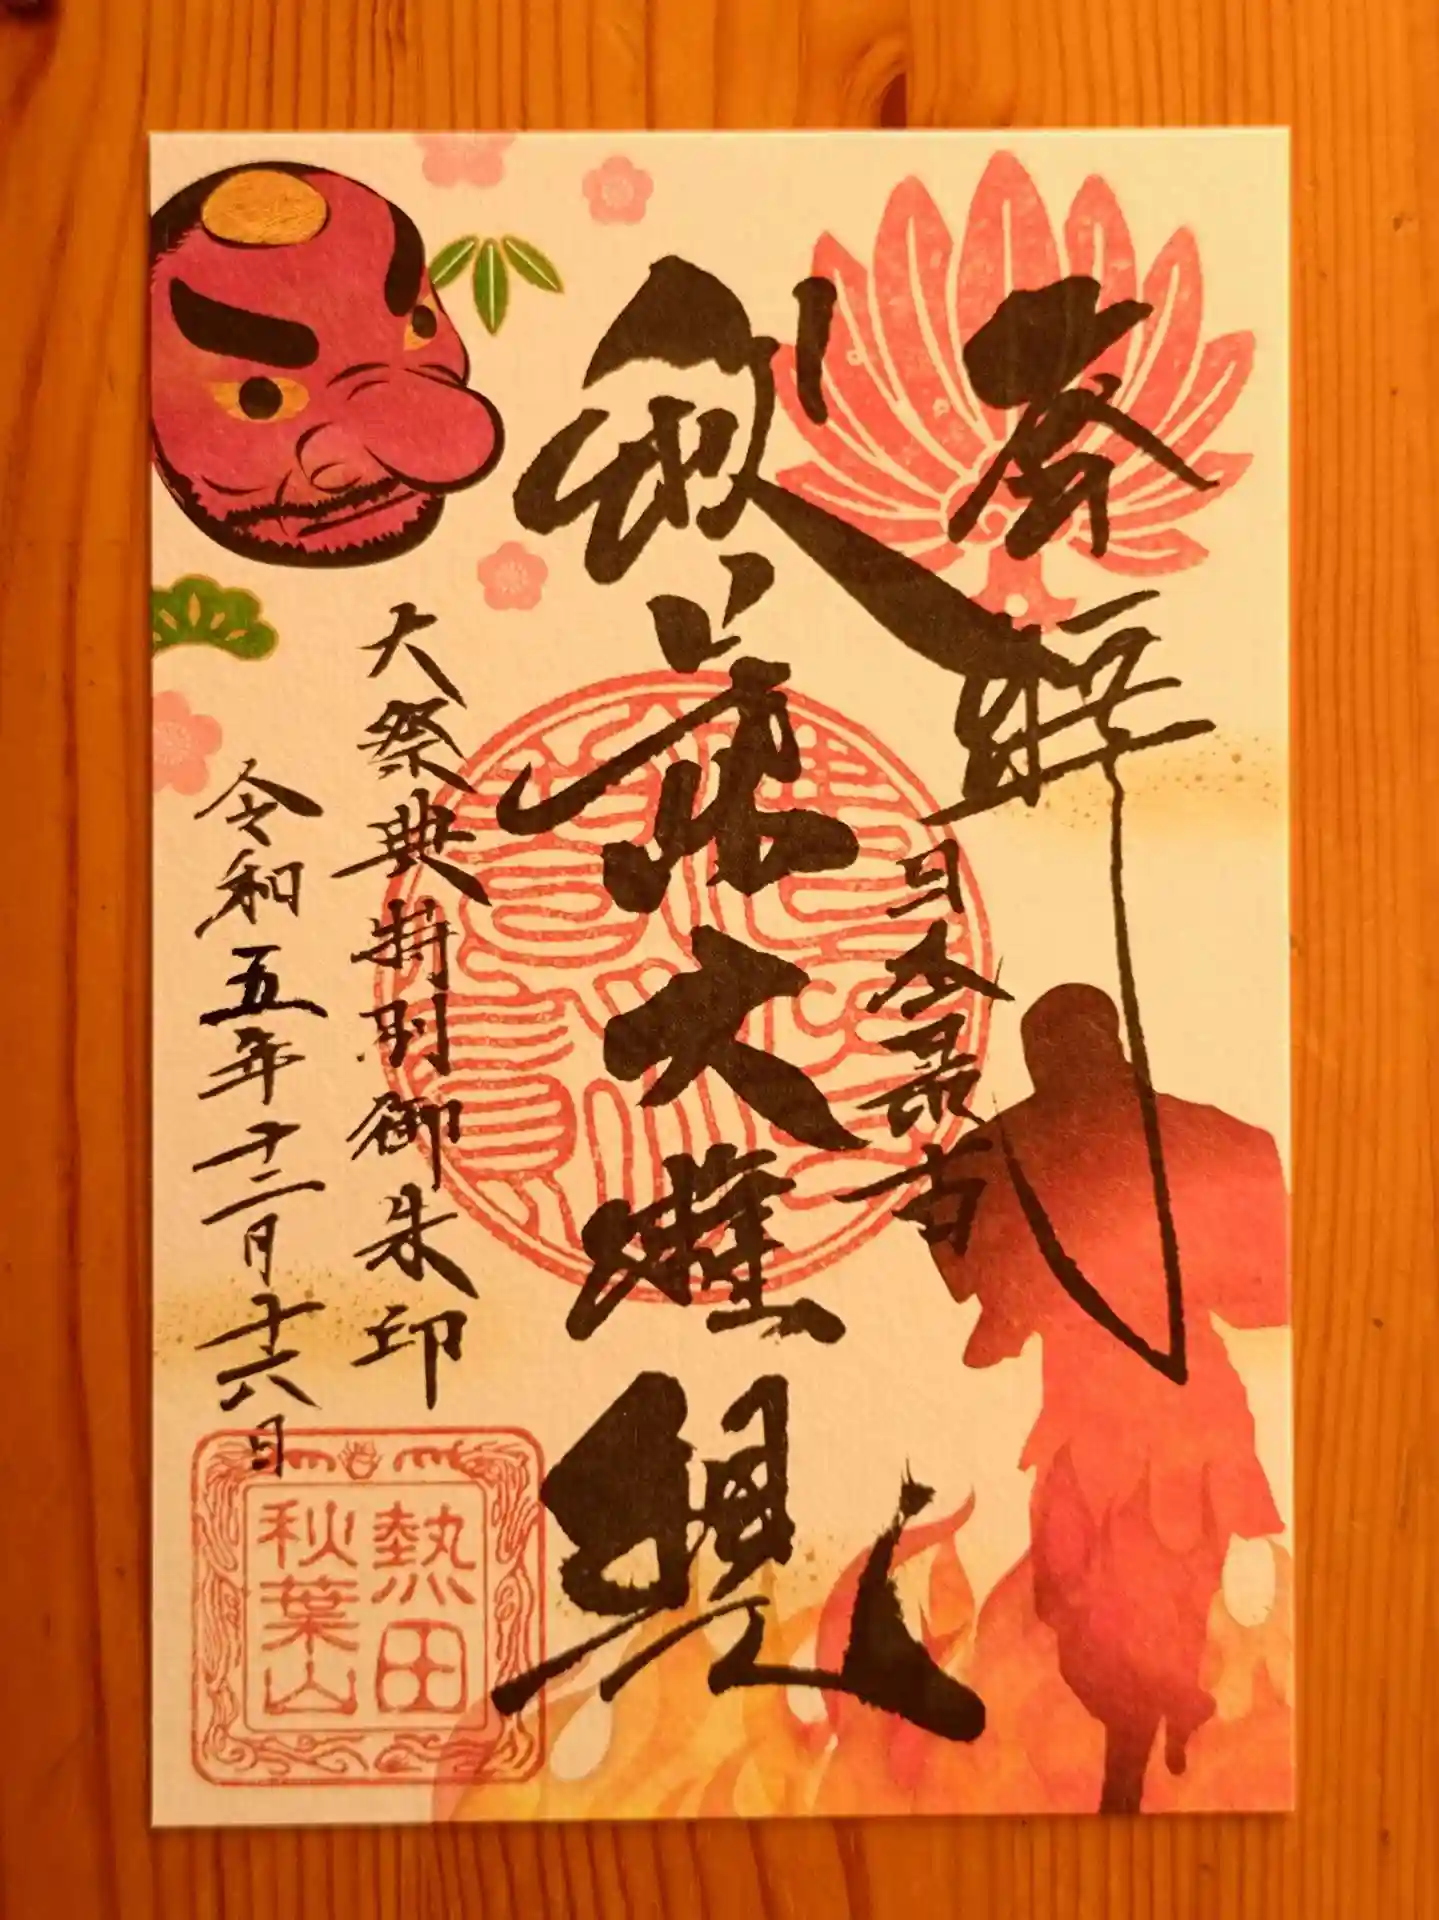 奉拝
日本最古
秋葉大權現
大祭典特別御朱印
令和五年十二月十六日
熱田
秋葉山